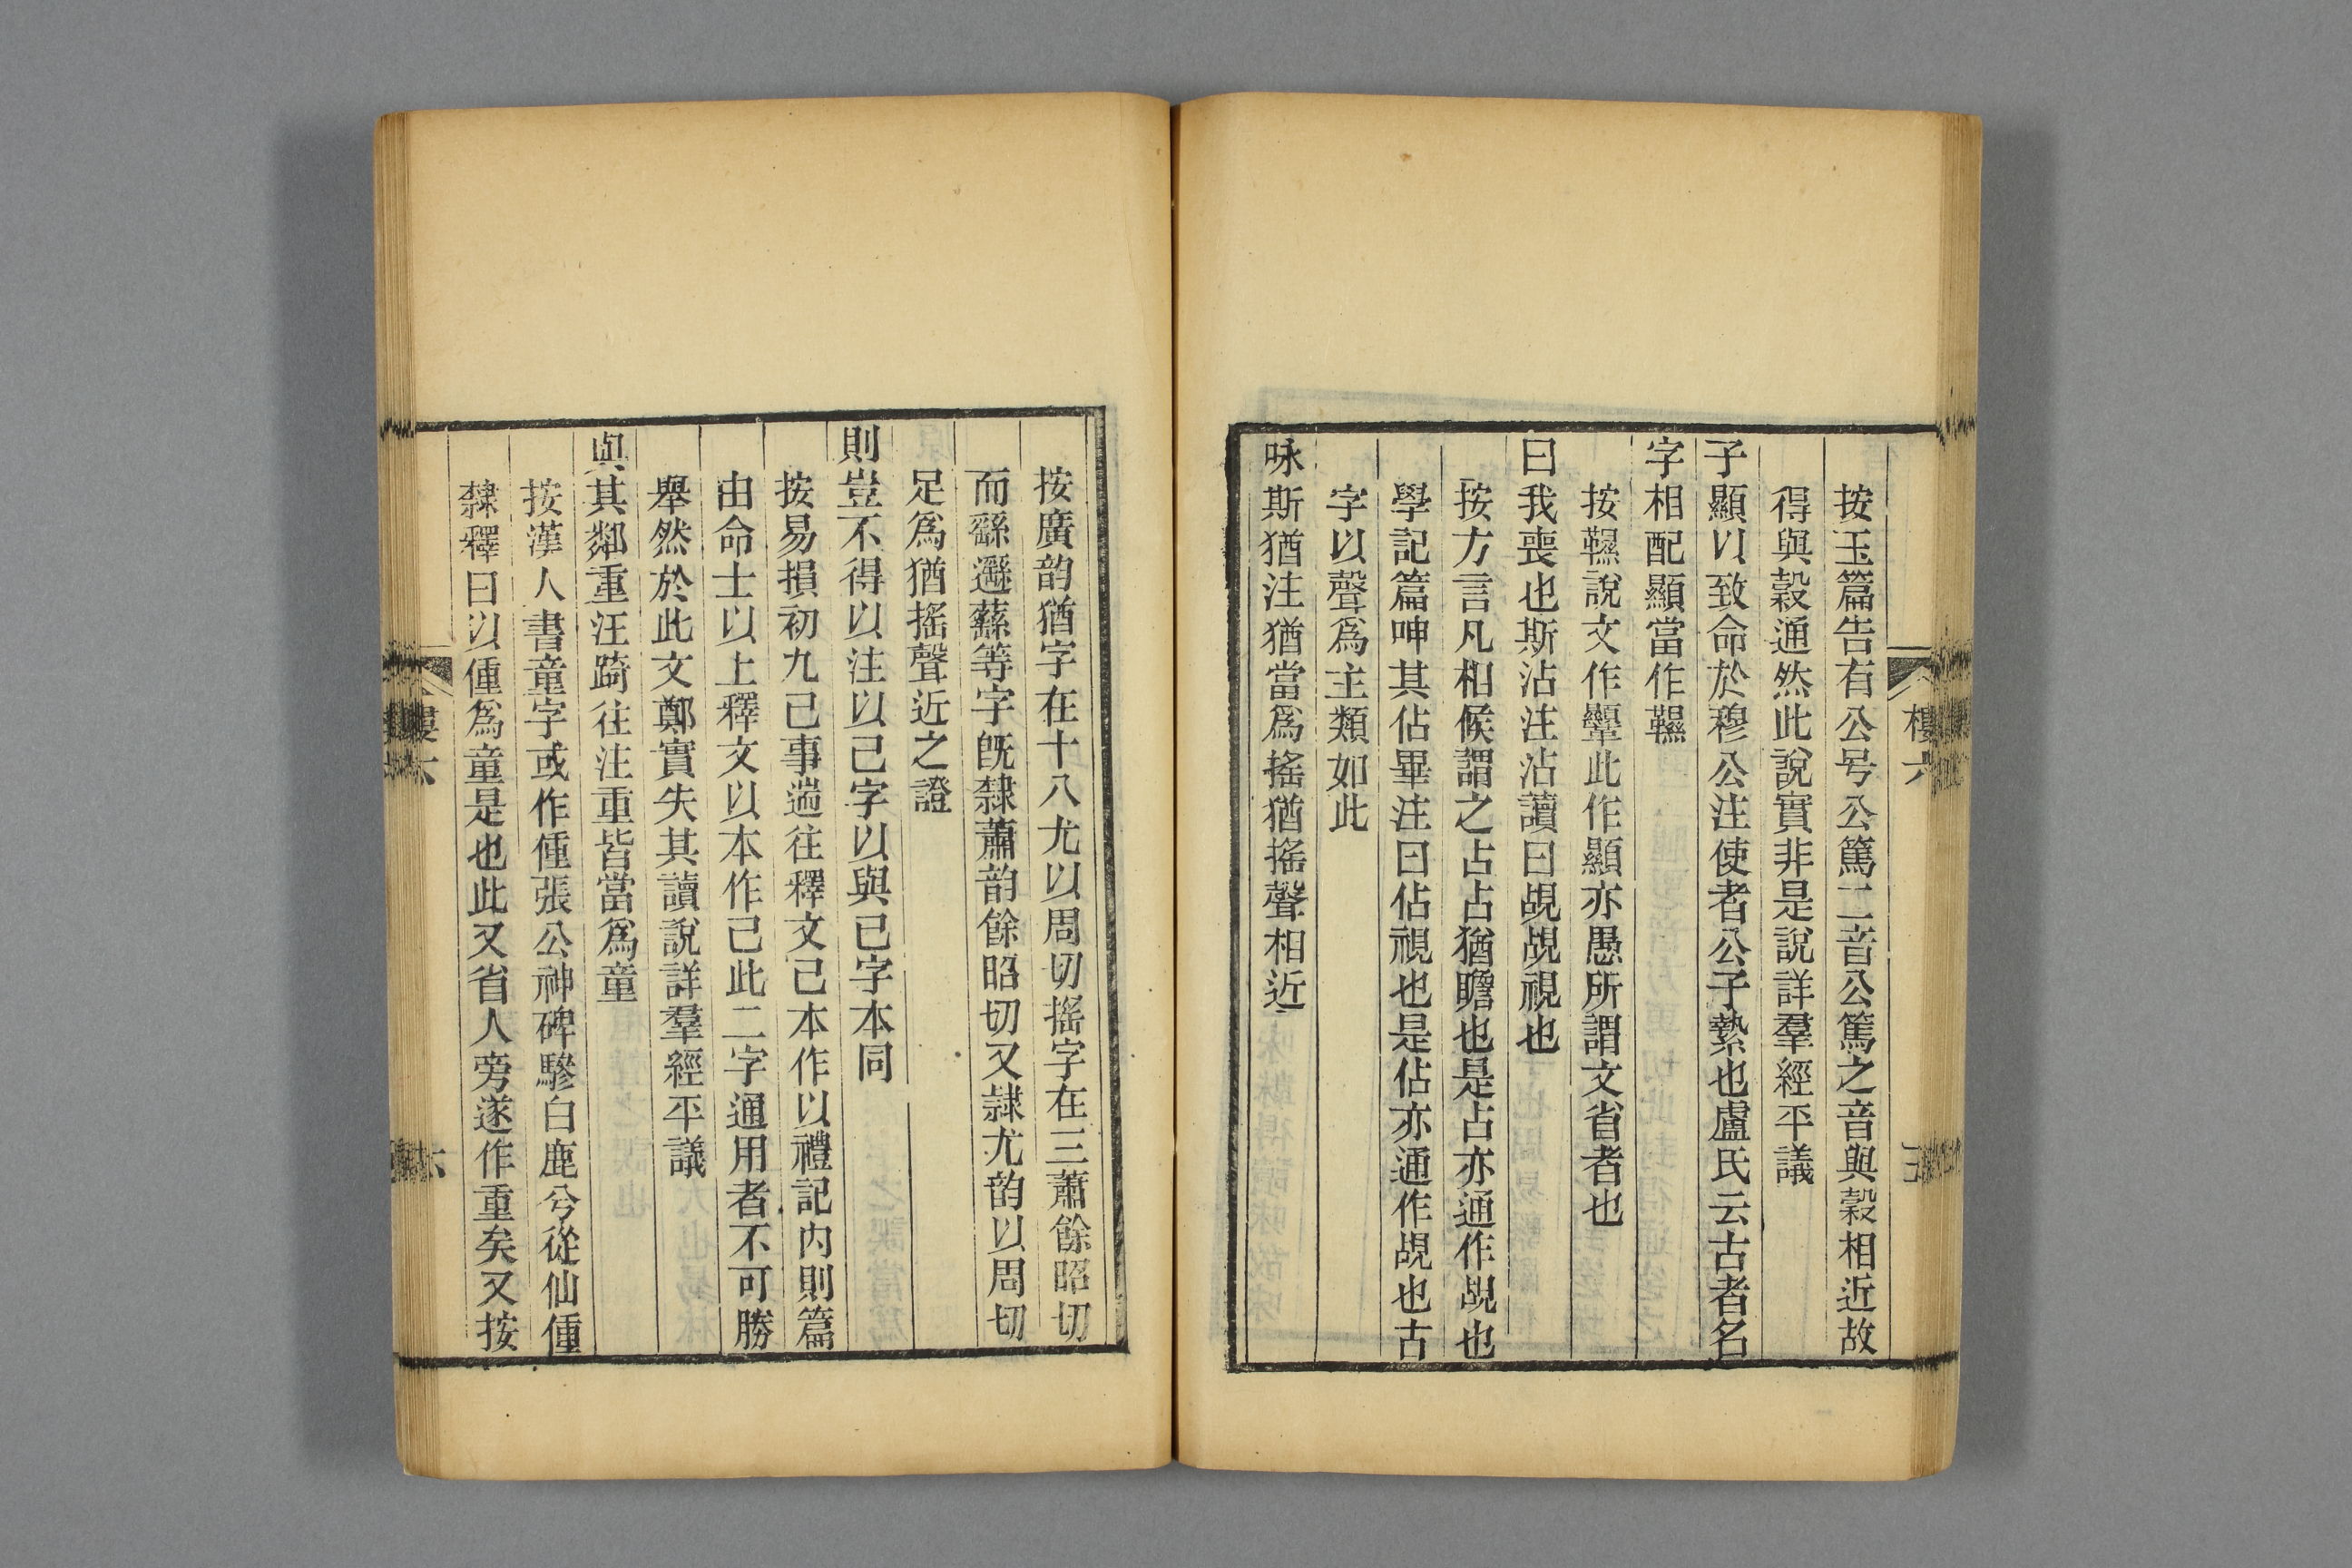 按玉篇告有公号公篤二音公篤之音與穀相近故
得與穀通然此說實非是說詳羣經平議
子顯以致命於穆公注使者公子縶也盧氏云古者名
字相配顯當作韅
按韅說文作㬎此作顯亦愚所謂文省者也
曰我喪也斯沾注沾讀曰覘覘視也
按方言凡相候謂之占占猶瞻也是占亦通作覘也
學記篇呻其佔畢注曰佔視也是佔亦通作覘也古
字以聲爲主類如此
咏斯猶注猶當爲搖猶搖聲相近
按廣韵猶字在十八尤以周切搖字在三蕭餘昭切
而繇遯蘨等字旣隸蕭韵餘昭切又隸尤韵以周切
足爲猶搖聲近之證
則豈不得以注以己字以與已字本同
按易損初九已事遄往釋文已本作以禮記內則篇
由命士以上釋文以本作已此二字通用者不可勝
舉然於此文鄭實失其讀說詳羣經平議
與其鄰重汪踦往注重皆當爲童
按漢人書童字或作僮張公神碑驂白鹿兮從仙僮
隸釋曰以僮爲童是也此又省人旁遂作重矣又按
樓六
五
六